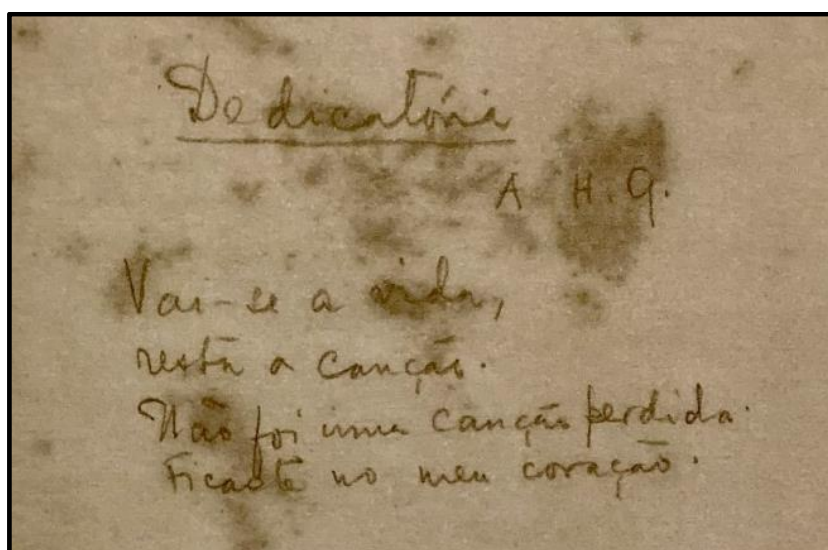 Dedicatória
A H. G.
Vai-se a vida,
resta a canção.
Não foi uma canção perdida.
Ficaste no meu coração.